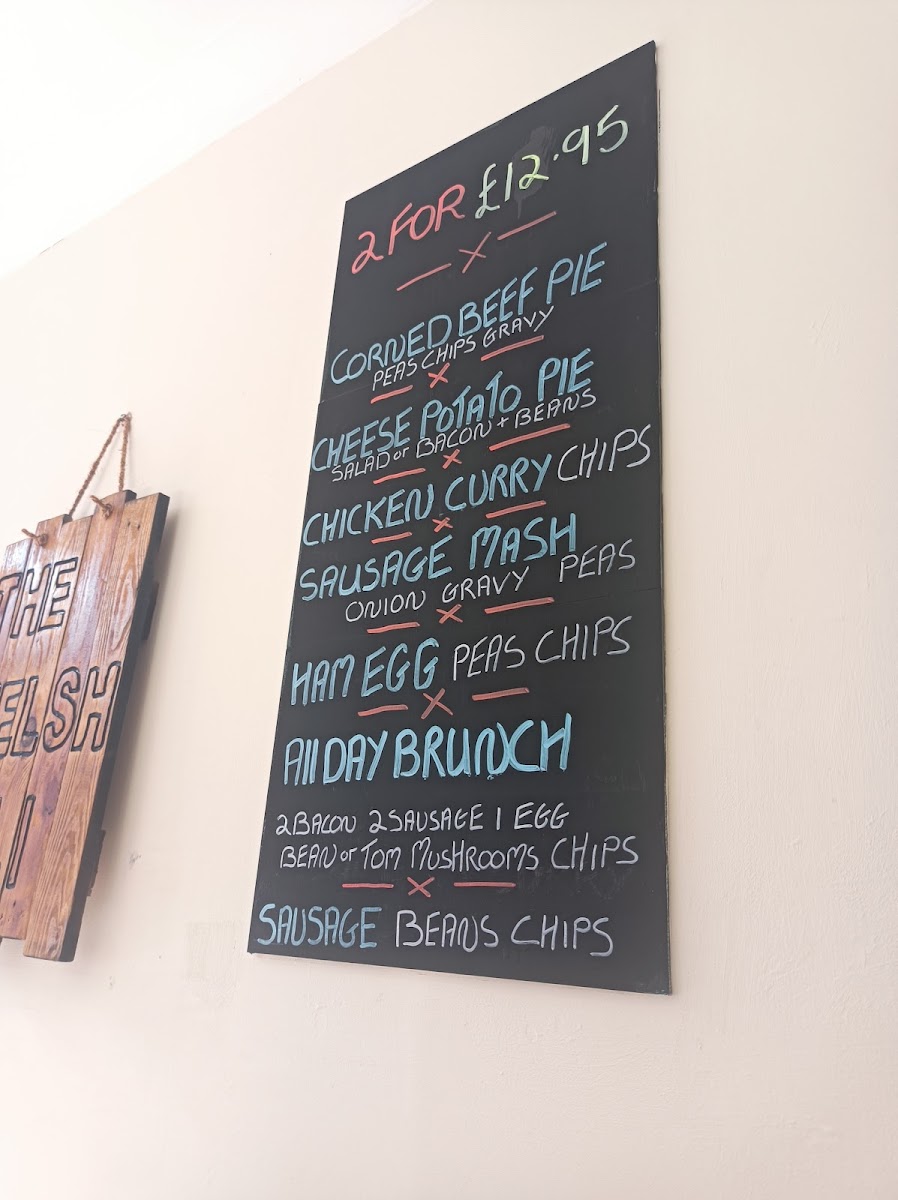 2 FOR £12.95
CORNED BEEF PIE
PEAS CHIPS GRAVY
CHEESE POTATO PIE
SALAD or BACON + BEANS
CHICKEN CURRY CHIPS
SAUSAGE MASH
ONION GRAVY PEAS
HAM EGG PEAS CHIPS
All DAY BRUNCH
2 BACON 2 SAUSAGE 1 EGG
BEAN or TOM MUSHROOMS CHIPS
SAUSAGE BEANS CHIPS
THE
ELSH